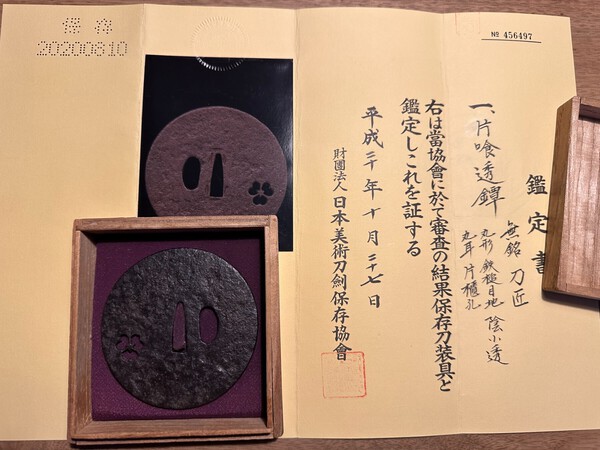 保存
20200810
№ 456497
鑑定書
一、片喰透鐔
無銘 刀匠
丸形 鉄槌目地 陰小透
丸耳 片櫃孔
右は當協會に於て審査の結果保存刀装具と
鑑定しこれを証する
平成二十年十月二十七日
財團法人日本美術刀劍保存協會